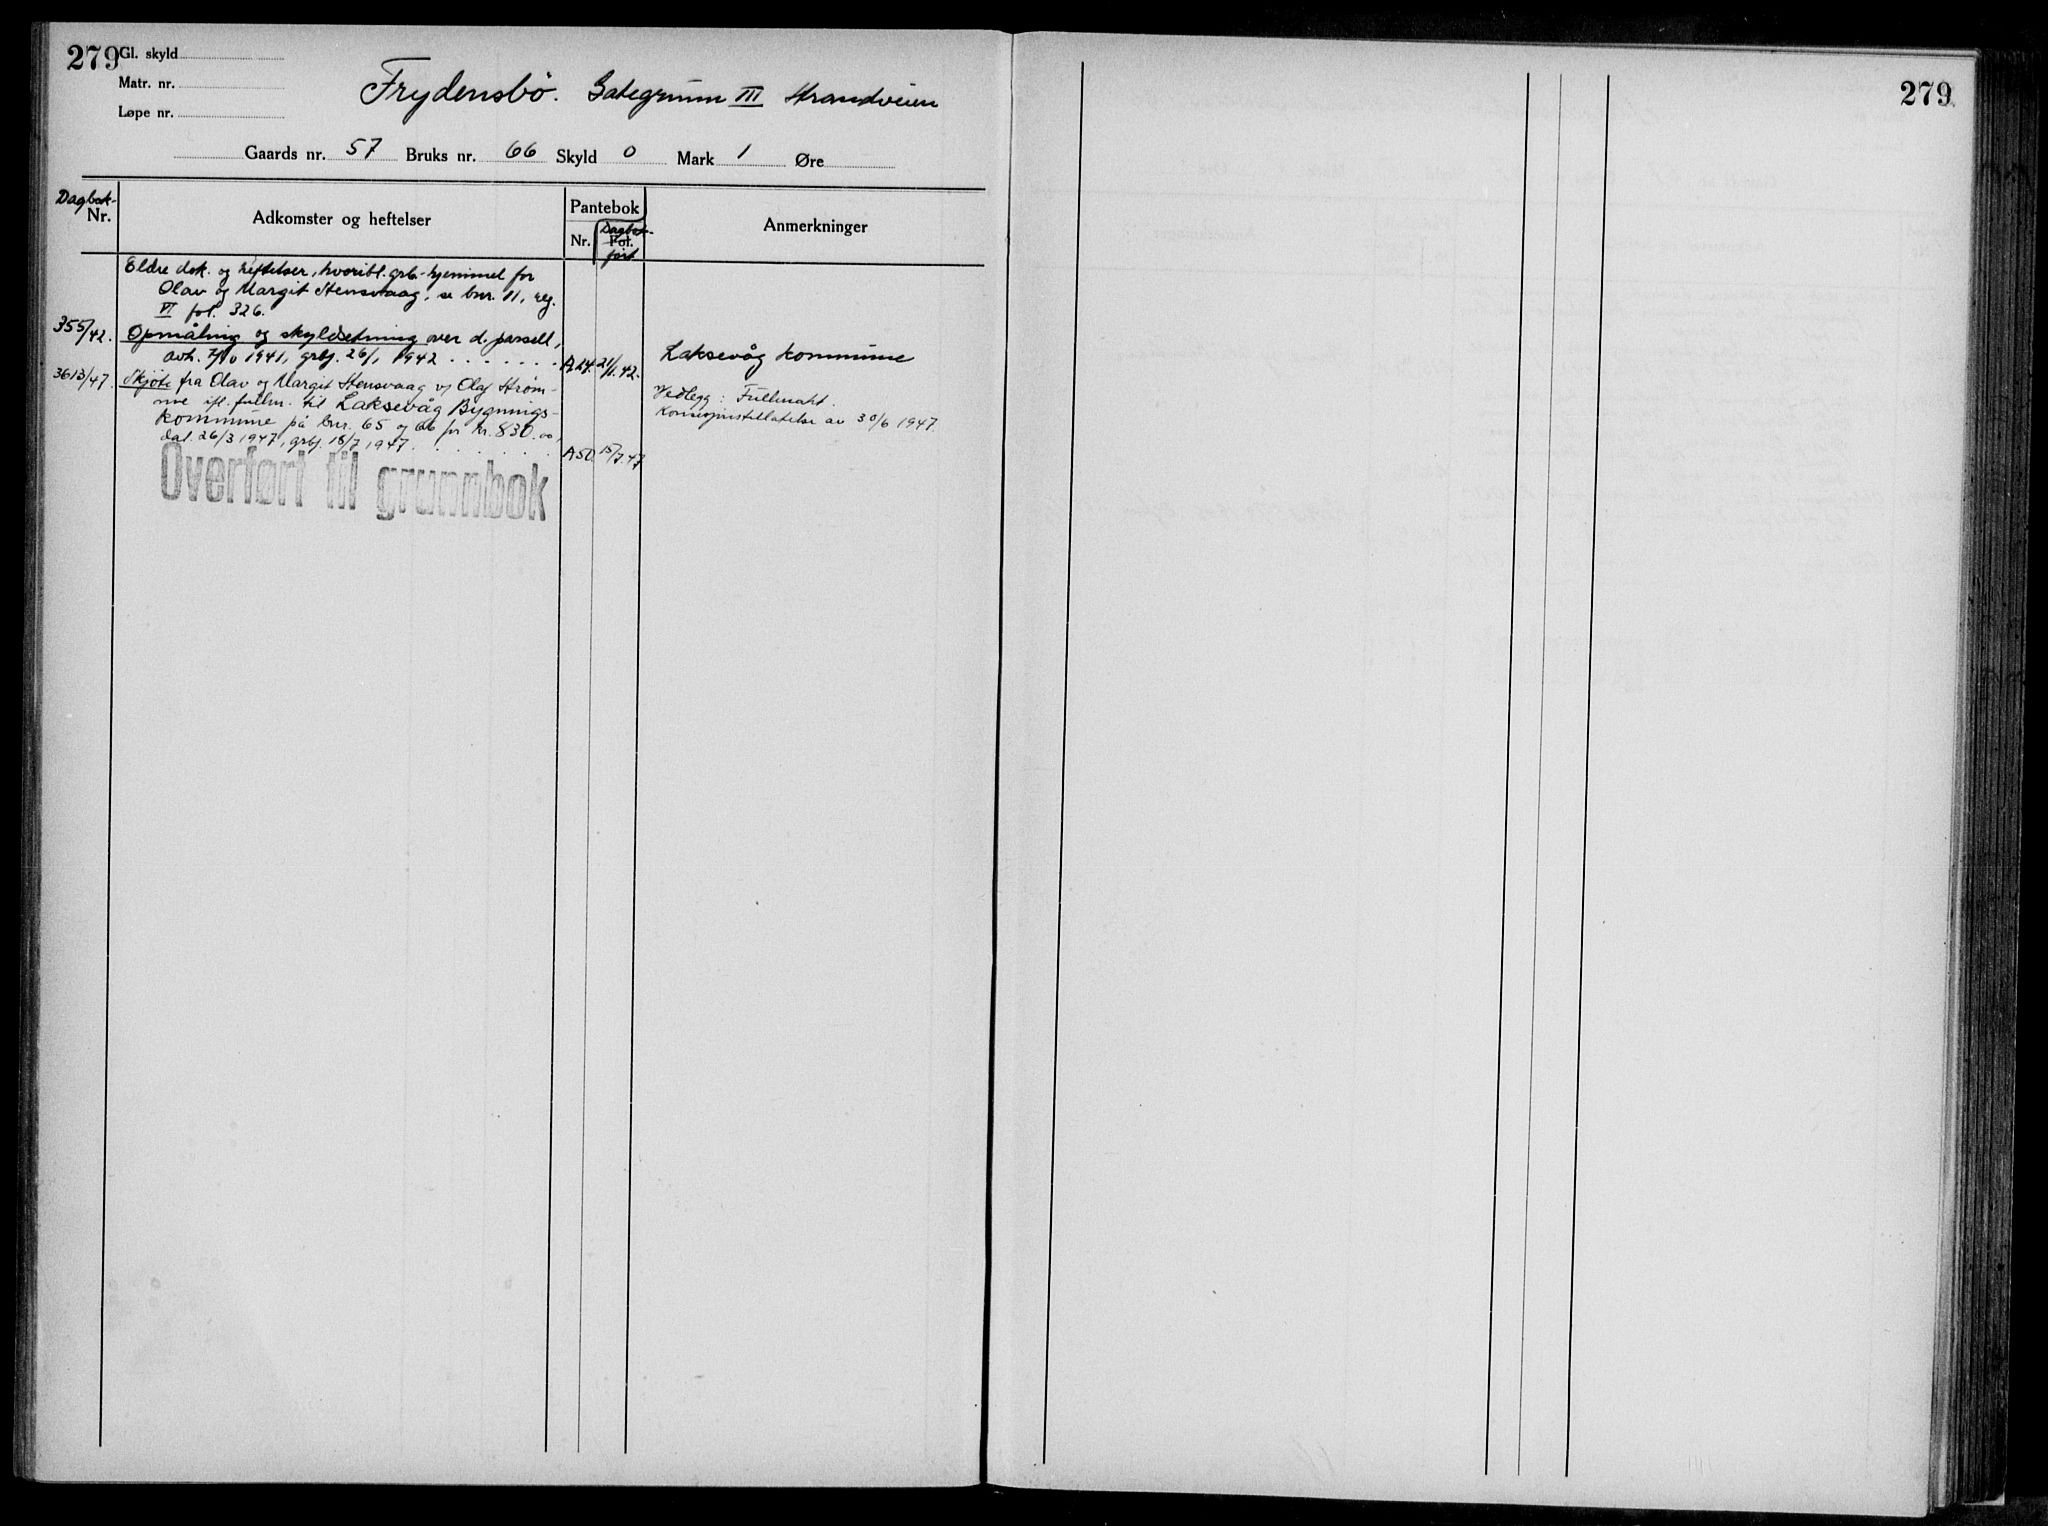 279
Gl. skyld
Matr. nr.
Løpe nr.
Frydensbö. Gategrunn III Strandveien
Gaards nr. 57 Bruks nr. 66 Skyld 0 Mark 1 Øre
Dagbok-
Nr.
Adkomster og heftelser
Pantebok
Nr.
Dagbok-
Fol.
ført
Anmerkninger
Eldre dok. og heftelser, hvoribl. grb-hjemmel for
Olav og Margit Stensvaag, se bnr. 11, reg.
VI fol. 326.
355/42. Opmåling og skyldsetning over d. parsell,
avh. 7/10 1941, grbj. 26/1 1942 A.14. 21/1.42. Laksevåg kommune
3613/47 Skjøte fra Olav og Margit Stensvaag v/ Olaf Strøm-
me ifl. fullm. til Laksevåg Bygnings-
kommune på bnr. 65 og 66 for kr. 830.00,
dat. 26/3 1947, grbj. 18/7 1947. A50. 15/7.47
Vedlegg: Fullmakt.
Konsesjonstillatelse av 30/6 1947.
Overført til grunnbok
279